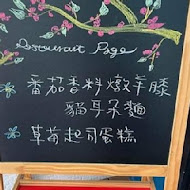 Restaurant Page
番茄香料燉羊膝
貓耳朵麵
草莓起司蛋糕